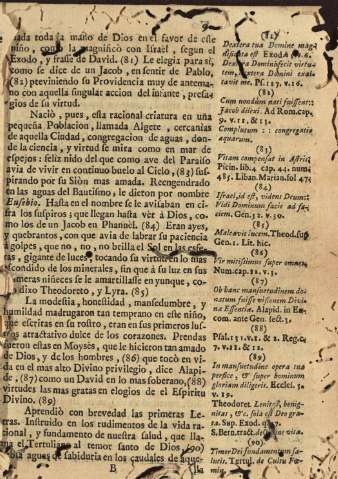 toda la mano de Dios en el favor de este
niño, como la magnificò con Israèl, segun el
Exodo, y frase de David. (81) Le elegia para sì,
como se dice de un Jacob, en sentir de Pablo,
(82) previniendo su Providencia muy de antema-
no con aquella singular accion del infante, presa-
gios de su virtud.
Naciò, pues, esta racional criatura en una
pequeña Poblacion, llamada Algete, cercanìas
de aquella Ciudad, congregacion de aguas, don-
de la ciencia, y virtud se mira como en mar de
espejos: feliz nido del que como ave del Paraìso
avia de vivir en continuo buelo al Cielo, (83) sus-
pirando por su Siòn mas amada. Reengendrado
en las aguas del Bautismo, le dieron por nombre
Eusebio. Hasta en el nombre se le avisaban en ci-
fra los suspiros; que llegan hasta vèr à Dios, co-
mo los de un Jacob en Phanuèl. (84) Eran ayes,
y quebrantos, con que avia de labrar su paciencia
golpes, que no, no, brilla el Sol en las esfe-
ras, gigante de luces, tocando su virtud lo mas
escondido de los minerales, sin que à su luz en sus
primeras niñeces se le amartillasse en yunque, co-
dixo Theodoreto, y Lyra. (85)
La modestia, honestidad, mansedumbre, y
humildad madrugaron tan temprano en este niño,
que escritas en su rostro, eran en sus primeros lus-
tros attractivo dulce de los corazones. Prendas
fueron ellas en Moysès, que le hicieron tan amado
de Dios, y de los hombres, (86) que tocò en vi-
da en el mas alto Divino privilegio, dice Alapi-
de, (87) como un David en lo mas soberano, (88)
virtudes las mas gratas en elogios de el Espiritu
Divino. (89)
Aprendiò con brevedad las primeras Le-
tras. Instruìdo en los rudimentos de la vida ra-
cional, y fundamento de nuestra salud, que lla-
ma el Tertuliano al temor santo de Dios, (90)
bebia aguas de sabiduría en los caudales de aque-
B
lla
(81)
Dextera tua Domine mag-
Exod.
Dextera Domini fecit virtu-
tem, dextera Domini exal-
tavit me. Ps. 117. v. 16.
(82)
Cum nondum nati fuissent:
Jacob dilexi. Ad Rom. cap.
9. v. 11. & 12.
Complutum : : congregatio
aquarum.
(83)
Vitam compensat in
Picin. lib. 4. cap. 41. num.
485. Liban. Marian. fol. 47.
(84)
Israel, id est, videns Deum:
Vidi Dominum facie ad fa-
ciem. Gen. 32. v. 30.
(85)
Theod. sup.
Gen. 1. Lit. hic.
(86)
Vir mitissimus super omnes.
Num. cap. 12. v. 3.
(87)
Ob hanc mansuetudinem do-
natum fuisse visionem Divi-
na Essentia. Alapid. in Ex.
com. ante Gen. sect. 3.
(88)
Psal. 131. v. 1. & 2. Reg. c.
7. v. 12. & 11.
(89)
In mansuetudine opera tua
perfice, & super hominum
gloriam diligeris. Eccles. 3.
v. 19.
Theodoret. Lenitas, benig-
nitas, &c. sola est Deo gra-
ta. Sup. Exod.
S. Bern. tract.
(90)
Timor Dei fundamentum sa-
lutis. Tertul. de Cultu Fœ-
min.